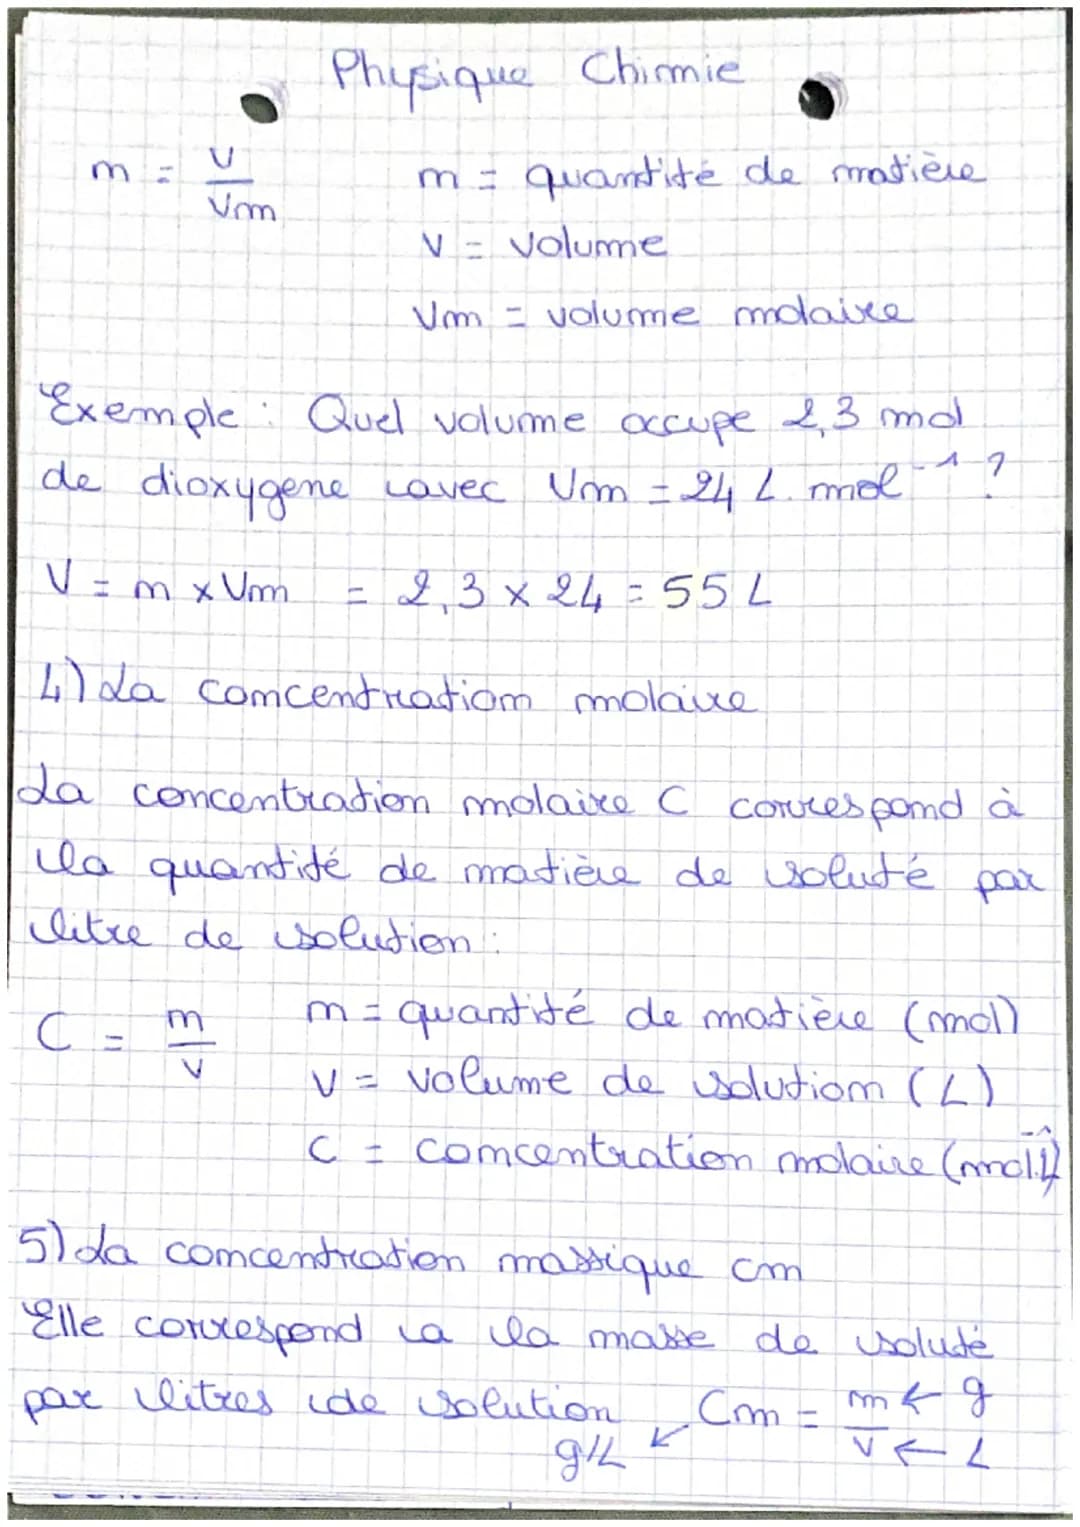 Physique Chimie
n = V / Vm
n = quantité de matière
V = volume
Vm = volume molaire
Exemple : Quel volume occupe 2,3 mol
de dioxygene avec Vm = 24 L. mol⁻¹ ?
V = n x Vm = 2,3 x 24 = 55 L
4) La concentration molaire
La concentration molaire C correspond à
la quantité de matière de soluté par
litre de solution :
C = n / V
n = quantité de matière (mol)
V = volume de solution (L)
C = concentration molaire (mol.L⁻¹)
5) La concentration massique cm
Elle correspond a la masse de soluté
par litres de solution Cm = m ← g / V ← L
g/L ↙